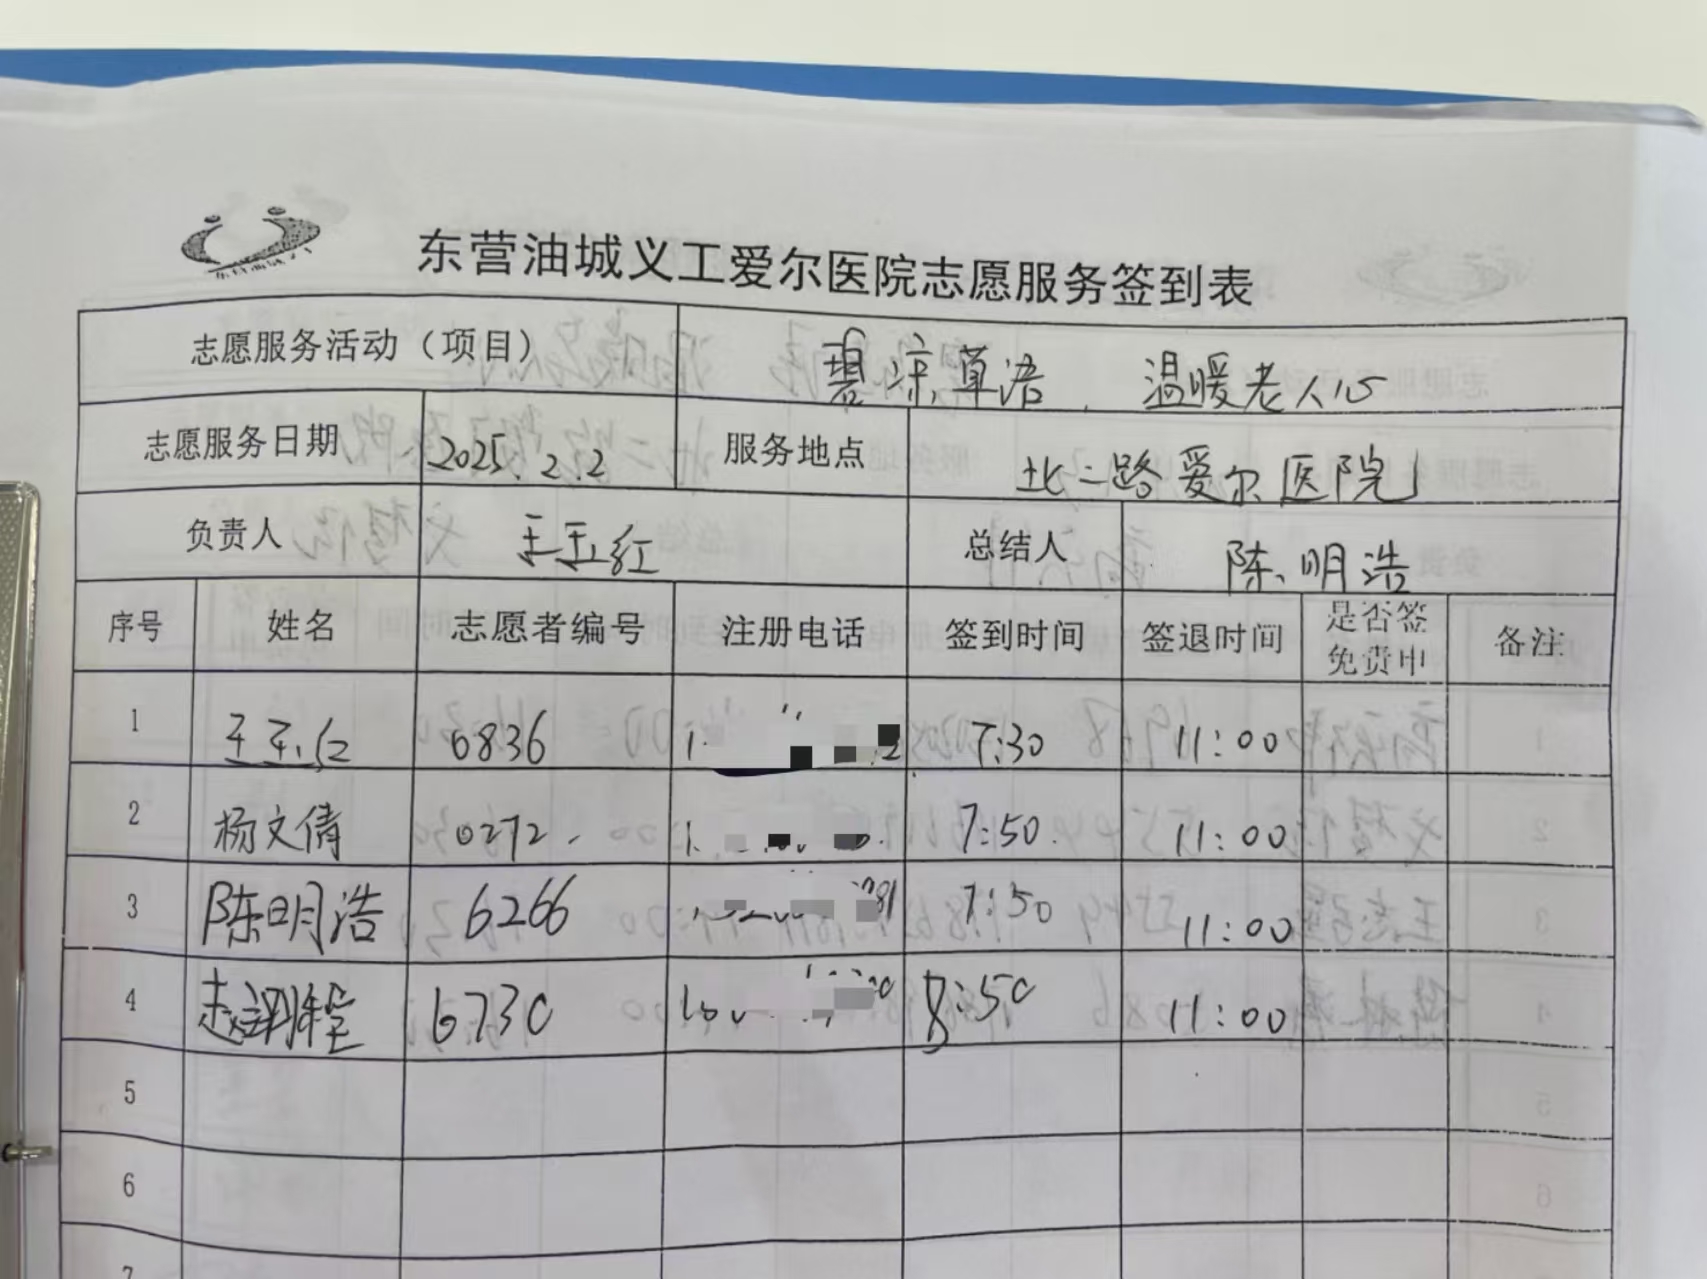 东营油城义工爱尔医院志愿服务签到表
志愿服务活动（项目） 温暖老人心
志愿服务日期 2025.2.2 服务地点 北二路爱尔医院
负责人 王玉红 总结人 陈明浩
序号 姓名 志愿者编号 注册电话 签到时间 签退时间 是否签免责申 备注
1 王玉红 0836 7:30 11:00
2 杨文倩 0272 7:50 11:00
3 陈明浩 6266 7:50 11:00
4 6730 8:50 11:00
5
6
7